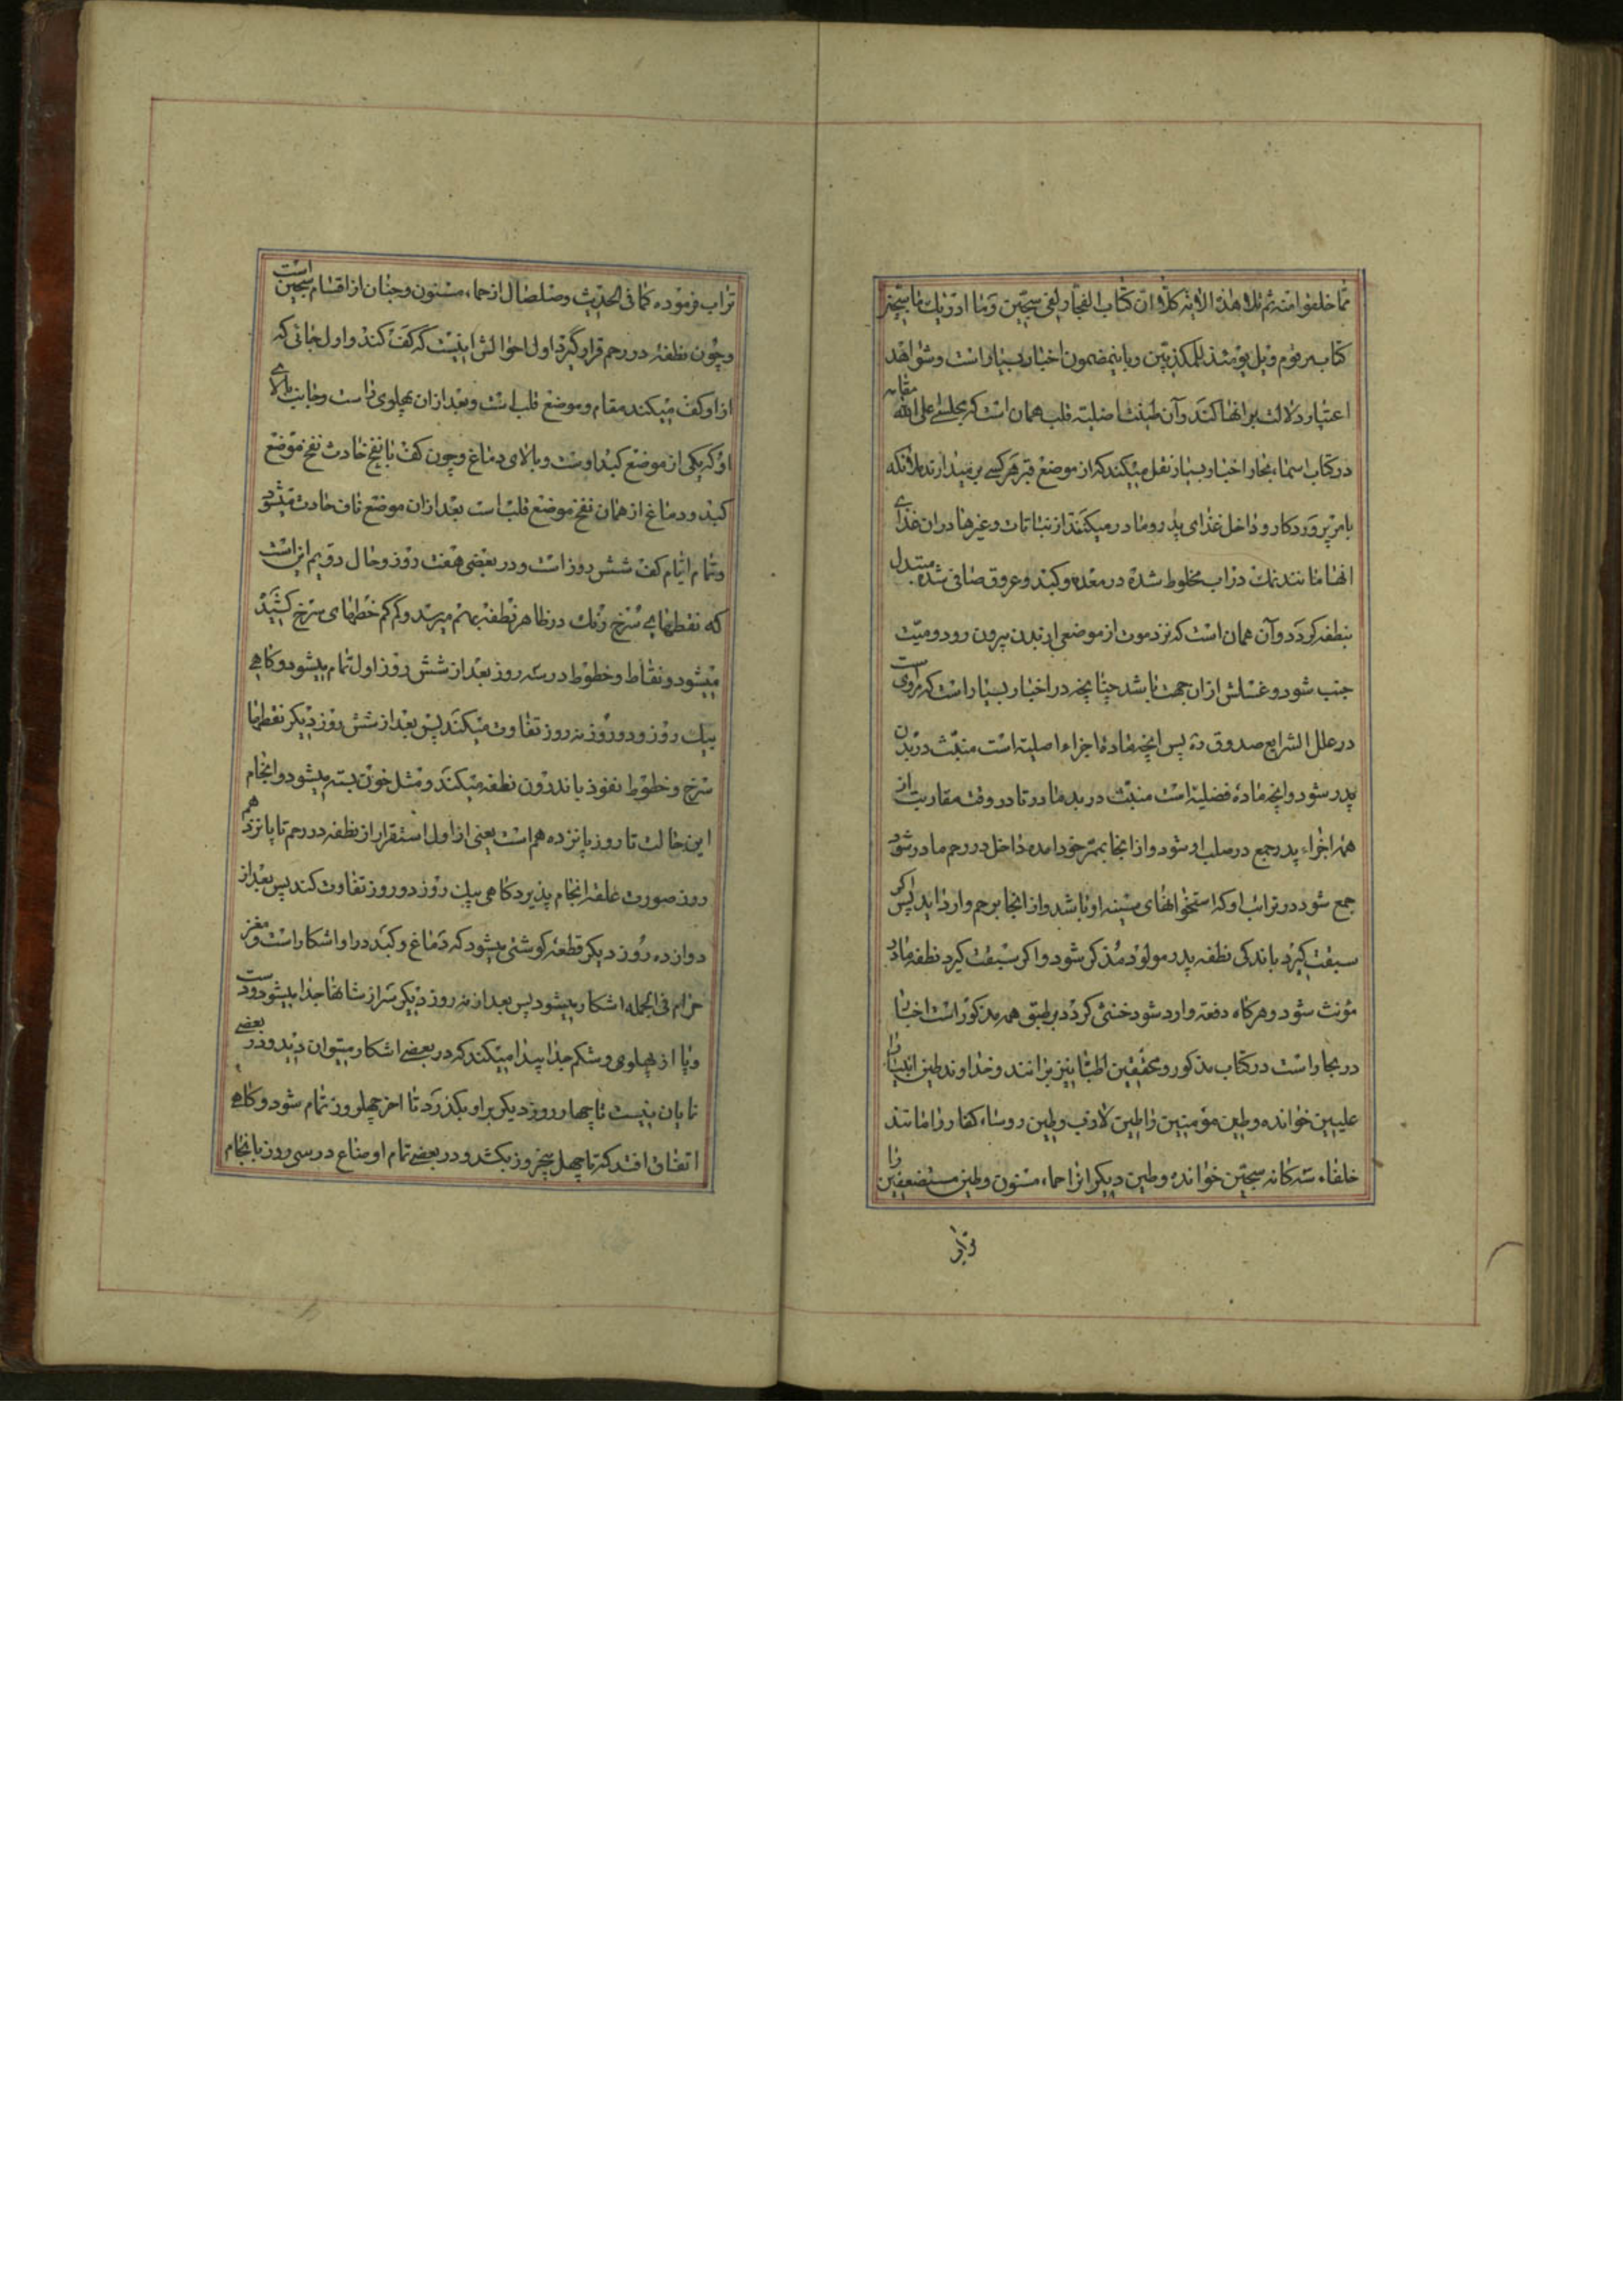 مما خلقوا منه ثم تلا هذه الایه کلا ان کتاب الفجار لفی سجین وما ادریک ما سجین
کتاب مرقوم ویل یومئذ للمکذبین و باینمضمون اخبار بسیار است و شواهد
اعتبار دلالت بر انها کند و آن طینت اصلیه قلب همان است که مجلسی علی الله مقامه
در کتاب اسماء بحار اخبار بسیار نقل میکند که از موضع قبر هر کسی بر میدارند ملائکه
بامر پروردکار و داخل غذای پدر و مادر میکنند از نباتات و غیرها در ان غذای
انها مانند نمک در اب مخلوط شده در معده و کبد و عروق صافی شده مبتدل
بنطفه کردد و آن همان است که نزد موت از موضعی از بدن بیرون رود و میت
جنب شود و غسلش از ان جهت باشد چنانچه در اخبار بسیار است که مروی است
در علل الشرایع صدوق ره پس انچه ماده اجزاء اصلیه است منبث در بدن
پدر شود و انچه ماده فضلیه است منبث در بدن مادر تا در وقت مقاربت از
همه اجزاء پدر جمع در صلب او شود و از انجا بممر خود امده داخل در رحم مادر شود
جمع شود در ترائب او که استخوانهای سینه او باشد و از انجا برحم وارد اید پس اکر
سبقت کیرد باندکی نطفه پدر مولود مذکر شود و اکر سبقت کیرد نطفه مادر
مؤنث شود و هرکاه دفعة وارد شود خنثی کردد بر طبق همه مذکور است اخبار
در بحار است در کتاب مذکور و محققین اطبا نیز برانند و خداوند طین انبیا را
علیین خوانده و طین مؤمنین را طین لازب و طین روساء کفار را مانند
خلفاء سه کانه سجین خوانده و طین دیگر انرا حماء مسنون و طین مستضعفین را
تراب
تراب فرموده کما فی الحدیث و صلصال از حماء مسنون و جنان از اقسام سجین است
و چون نطفه در رحم قرار گیرد اول احوالش اینست که کف کند و اول جائی که
از او کف میکند مقام و موضع قلب است و بعد از ان پهلوی راست و جانب بالای
او که یکی از موضع کبد اوست و بالای دماغ و چون کف با نفخ حادث نفخ موضع
کبد و دماغ از همان نفخ موضع قلب است بعد از ان موضع ناف حادث میشود
و تمام ایام کف شش روز است و در بعضی هفت روز و حال دویم این است
که نقطهایی سرخ رنک در ظاهر نطفه بهم میرسد و کم کم خطهای سرخ کشیده
میشود و نقاط و خطوط در سه روز بعد از شش روز اول تمام میشود و کاهی
بیک روز و دو روز نه روز تفاوت میکند پس بعد از شش روز دیکر نقطها
سرخ و خطوط نفوذ باندرون نطفه میکند و مثل خون بسته میشود و انجام
این حالت تا روز پانزدهم است یعنی از اول استقرار از نطفه در رحم تا پانزدهم
روز صورت علقه انجام پذیرد کاهی بیک روز دو روز تفاوت کند پس بعد از
دوازده روز دیکر قطعه کوشتی میشود که دماغ و کبد در او اشکار است و مغز
حرام فی الجمله اشکار میشود پس بعد از نه روز دیکر سر از شانها جدا میشود و دست
و پا از پهلوی و شکم جدا پیدا میکند که در بعضی اشکار میتوان دید و در بعضی
نمایان نیست تا چهار روز دیکر بر او بکذرد تا اخر چهلروز تمام شود و کاهی
اتفاق افتد که تا چهل پنجروز بکشد و در بعضی تمام اوضاع در سی روز بانجام